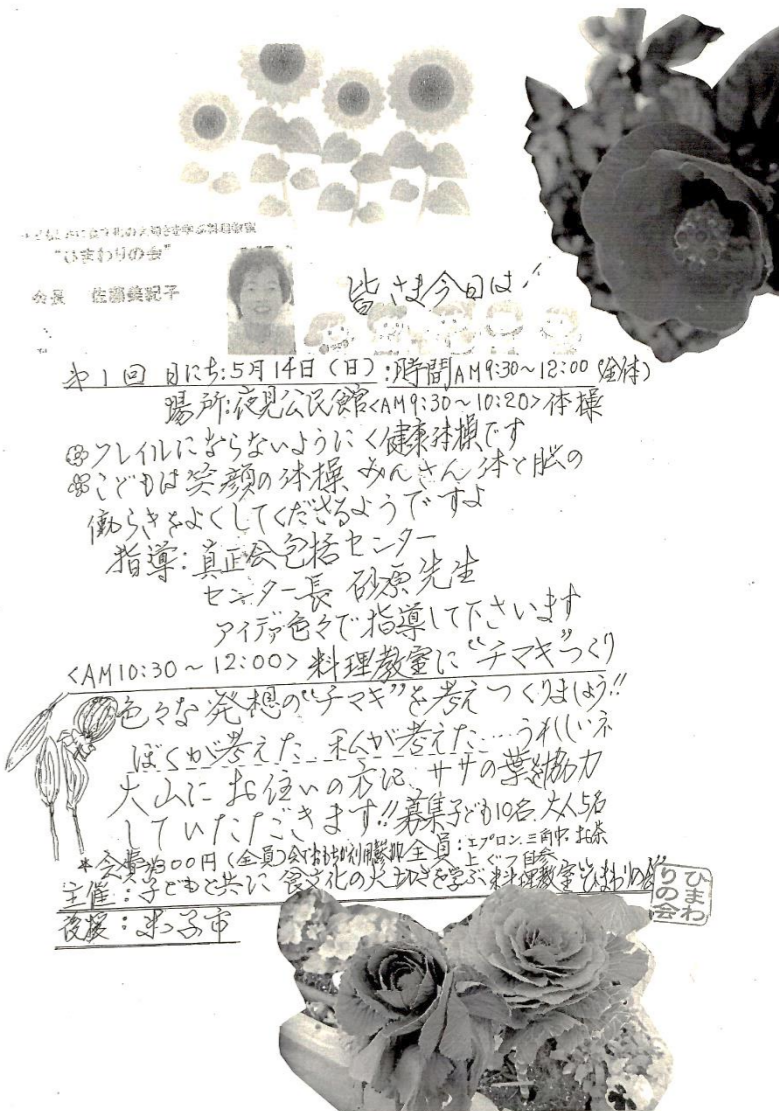 子どもと共に食文化の大切さを学ぶ料理教室
"ひまわりの会"
会長 佐藤美紀子
皆さま今日は!
第1回 日にち:5月14日(日):時間AM9:30~12:00(全体)
場所:夜見公民館<AM9:30~10:20>体操
フレイルにならないように<健康体操です
こどもは笑顔の体操 みんさん体と脳の
働らきをよくしてくださるようですよ
指導:真正会包括センター
センター長 砂原先生
アイデア色々で指導して下さいます
<AM10:30~12:00>料理教室に"チマキ"つくり
色々な発想の"チマキ"を考えつくりましょう!!
ぼくが考えた 私が考えた……うれしいネ
大山にお住いの方に ササの葉を協力
していただきます!!募集子ども10名、大人5名
*会費 300円(全員) 全員:エプロン、三角巾、お茶
上ぐつ自参
主催:子どもと共に 食文化の大切さを学ぶ料理教室"ひまわりの会"
ひまわ
りの会
後援:米子市